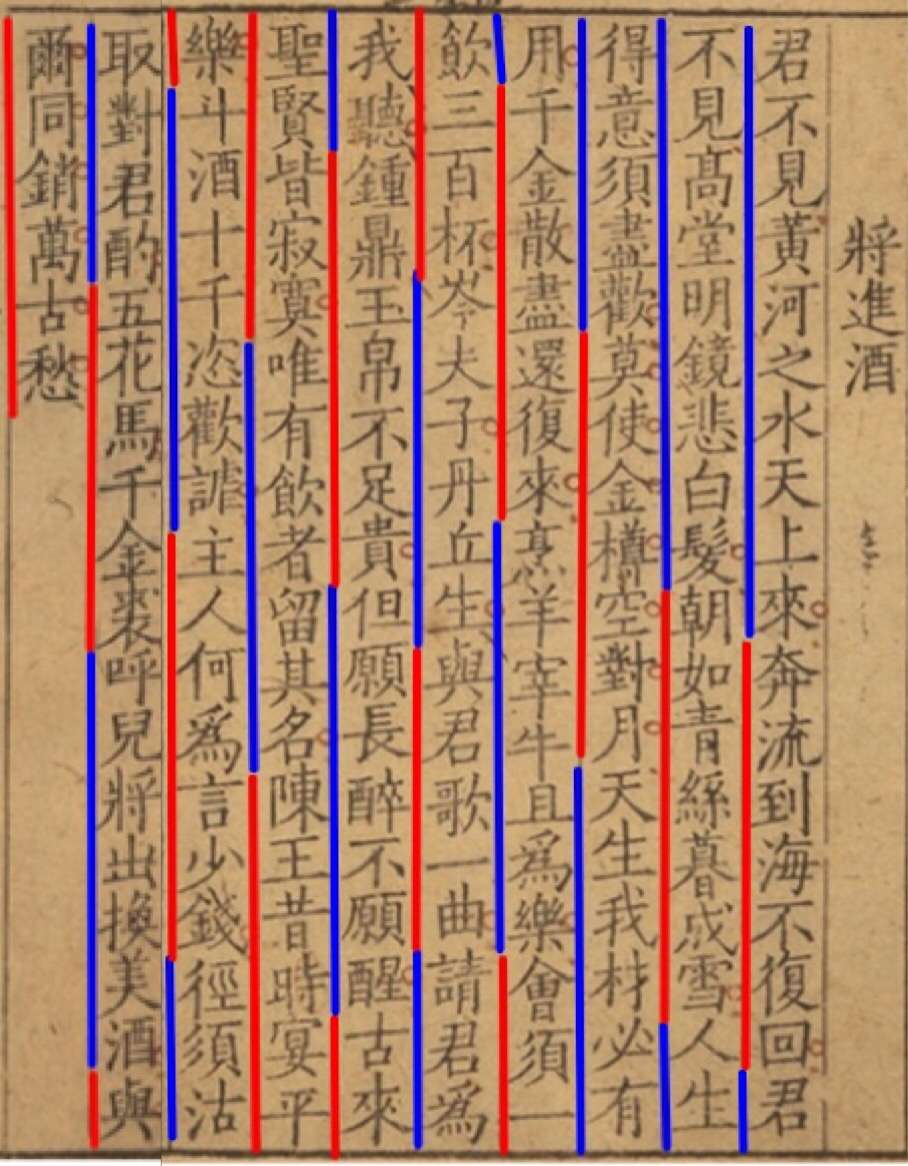 將進酒
君不見黃河之水天上來奔流到海不復回君
不見高堂明鏡悲白髮朝如青絲暮成雪人生
得意須盡歡莫使金樽空對月天生我材必有
用千金散盡還復來烹羊宰牛且爲樂會須一
飲三百杯岑夫子丹丘生與君歌一曲請君爲
我聽鍾鼎玉帛不足貴但願長醉不願醒古來
聖賢皆寂寞唯有飲者留其名陳王昔時宴平
樂斗酒十千恣歡謔主人何爲言少錢徑須沽
取對君酌五花馬千金裘呼兒將出換美酒與
爾同銷萬古愁